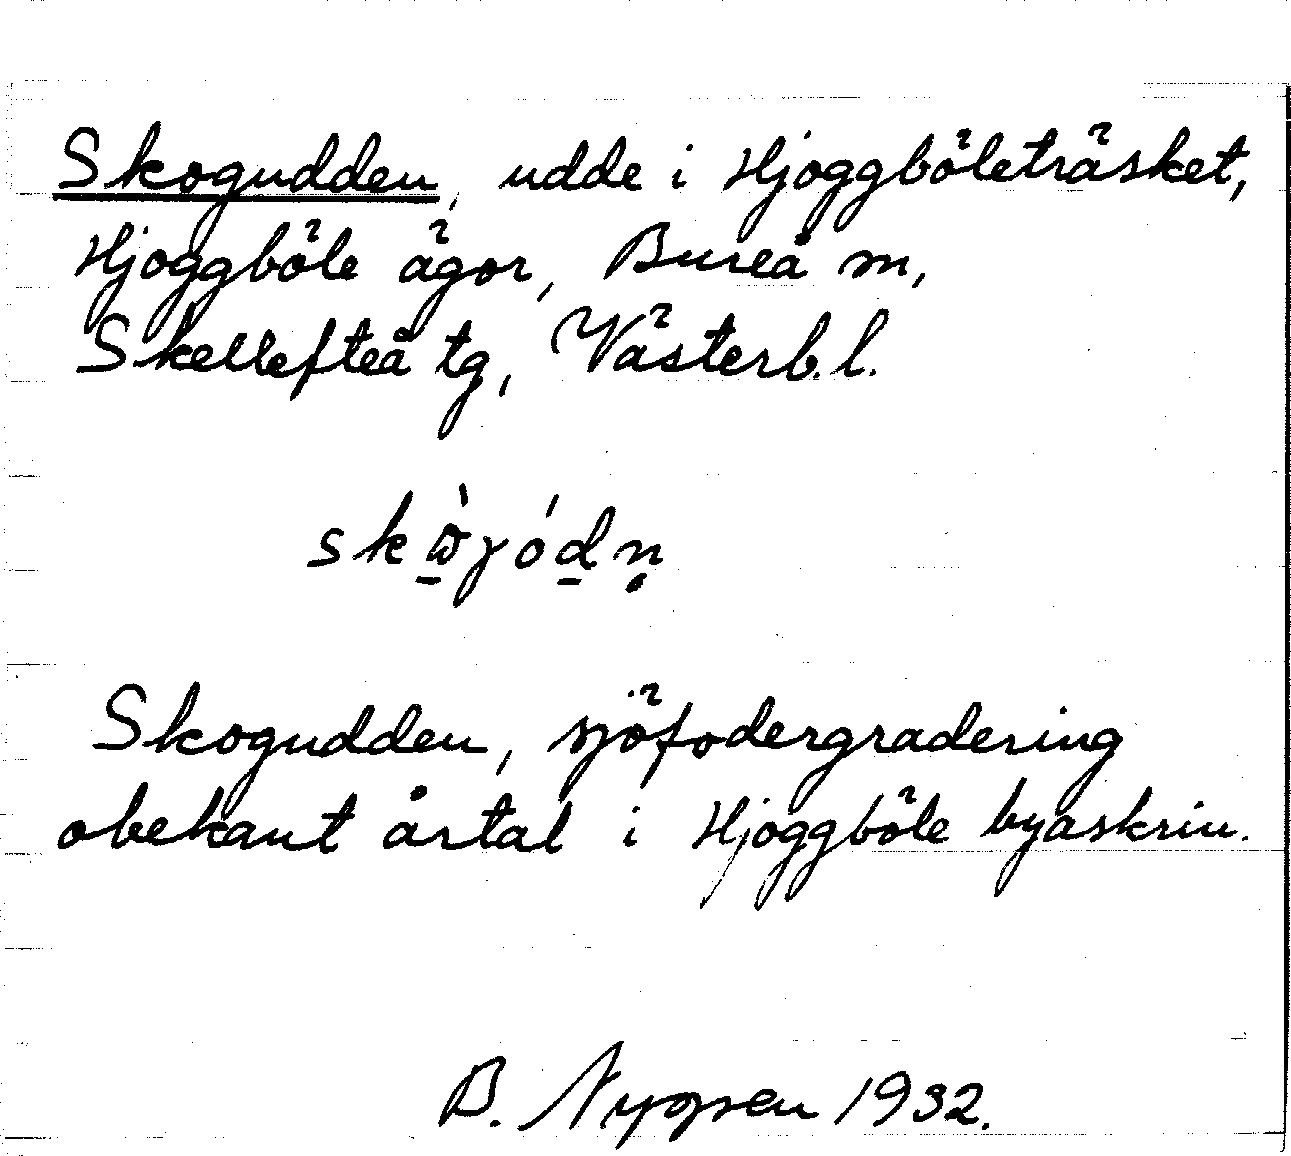 Skogudden, udde i Hjoggböleträsket,
Hjoggböle ägor, Bureå sn,
Skellefteå tg, Västerb. l.
Skogudden, sjöfodergradering
obekant årtal i Hjoggböle byaskrin.
B. 1932.